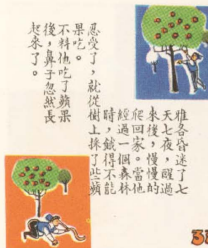 雅各昏迷了七
天七夜，醒過
來後，慢慢的
爬回家。當他
經過一個森林
時，餓得不能
忍受了，就從樹上採了些蘋
果吃。
不料他吃了蘋果
後，鼻子忽然長
起來了。